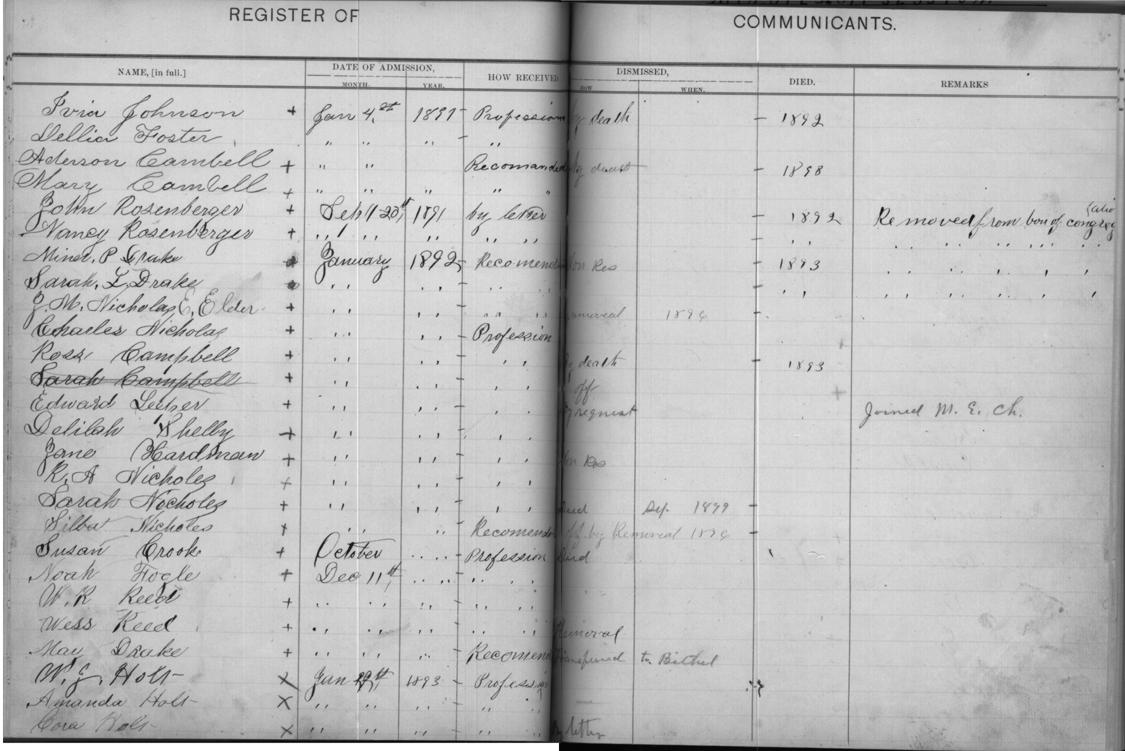 REGISTER OF COMMUNICANTS.
NAME, [in full.] DATE OF ADMISSION, HOW RECEIVED DISMISSED, DIED. REMARKS
MONTH. YEAR. HOW WHEN.
Johnson + Jan 4, 1891 Profession by death – 1892
Dellia Foster " " " – "
Aderson Cambell + " " " Recomanded by – 1898
Mary Cambell + " " " "
John Rosenberger + Sept 1891 by letter – 1892 Removed from of
Nancy Rosenberger + " " " " " – " " " " " " "
P Drake January 1892 – Recomend Non Res – 1893 , , , , ,
Sarah, Drake " " " – " " – " , , , , ,
J. M. Nicholas, Elder + " " " " – " " " 1896 –
Charles Nicholas + " " " " – Profession –
Ross Campbell + " " " " – , , by death – 1893
Sarah Campbell + " " " " – , , off
Edward + " " " " – , , request Joined M. E. Ch.
Delilah Shelly + " " " " – , ,
Jane Hardman + " " " " – , , Non Res –
R. A Nicholes + " " " " – , ,
Sarah Nocholes + " " " " – , , Sep. 1899 –
Nicholes + " " " – Recomend off by Removal 1896 –
Susan Crook + October " " – Profession Died
Noah Fogle + Dec 11th " " – " , ,
W. R Reed + " " " " – " , ,
Wess Reed + " " " " – " " , Removal
May Drake + " " " " – Recomend to Bethel
W. J. Holt × Jan 1893 – Profession
Amanda Holt × " " " – " " "
Cora Holt × " " " – " " , letter